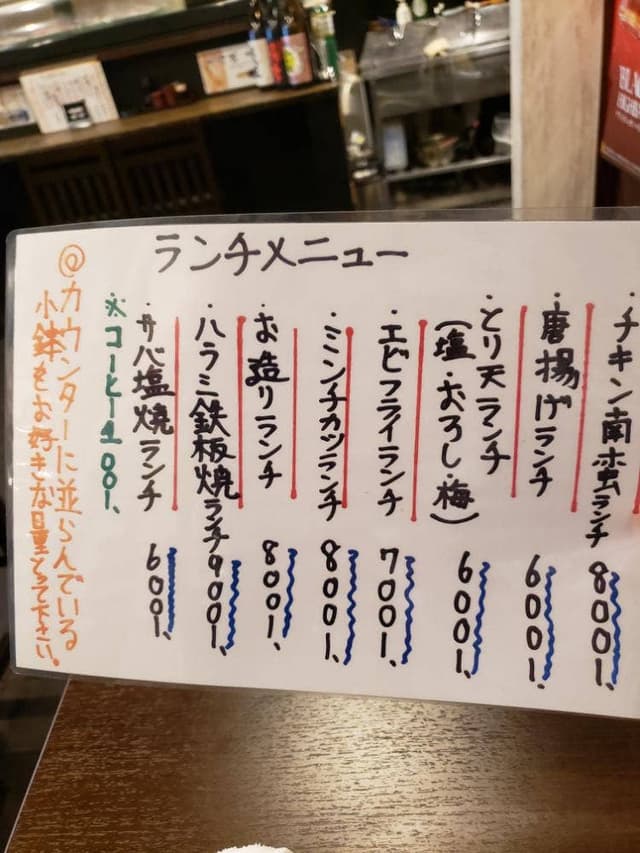 ランチメニュー
・チキン南蛮ランチ 800、
・唐揚げランチ 600、
・とり天ランチ 600、
(塩・おろし・梅)
・エビフライランチ 700、
・ミンチカツランチ 800、
・お造りランチ 800、
・ハラミ鉄板焼ランチ 900、
・サバ塩焼ランチ 600、
※コーヒー100、
@カウンターに並らんでいる
小鉢をお好きな量とって下さい。